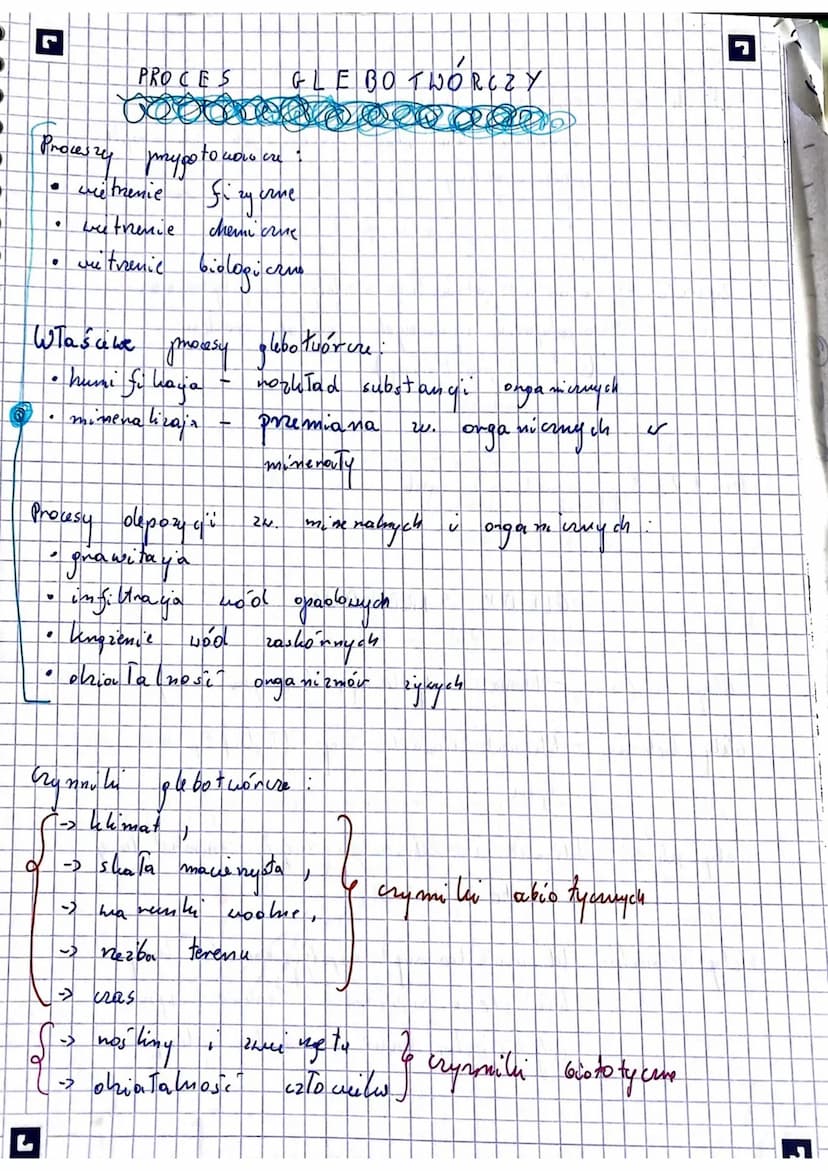 PROCES GLEBOTWÓRCZY
Procesy przygotowawcze:
• wietrzenie fizyczne
• wietrzenie chemiczne
• wietrzenie biologiczne
Właściwe procesy glebotwórcze:
• humifikacja - rozkład substancji organicznych
• mineralizacja - przemiana zw. organicznych w
minerały
Procesy depozycji zw. mineralnych i organicznych:
• grawitacja
• infiltracja wód opadowych
• krążenie wód zaskórnych
• działalność organizmów żywych
Czynniki glebotwórcze:
-> klimat,
-> skała macierzysta,
-> warunki wodne,
-> rzeźba terenu
-> czas
czynniki abiotycznych
-> rośliny i zwierzęta
-> działalność człowieka
czynniki biototyczne